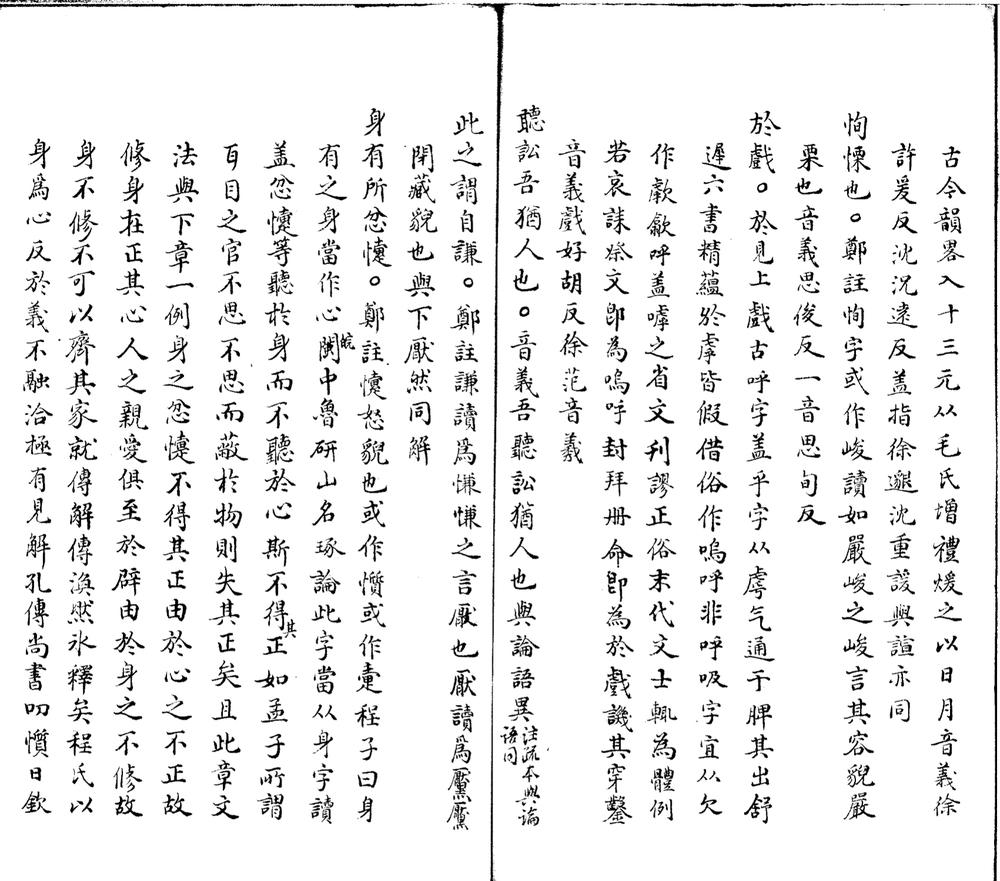 古今韻畧入十三元从毛氏增禮煖之以日月音義徐
許爰反沈況遠反蓋指徐邈沈重諼與諠亦同
恂慄也。鄭註恂字或作峻讀如嚴峻之峻言其容貌嚴
栗也音義思俊反一音思旬反
於戲。於見上戲古呼字蓋乎字从虖气通于脾其出舒
遲六書精蘊於虖皆假借俗作嗚呼非呼吸字宜从欠
作歑歈呼蓋嘑之省文刋謬正俗末代文士輒為體例
若哀誄祭文卽為嗚呼封拜册命卽為於戲譏其穿鑿
音義戲好胡反徐范音羲
聽訟吾猶人也。音義吾聽訟猶人也與論語異注疏本與論語同
此之謂自謙。鄭註謙讀爲慊慊之言厭也厭讀爲黶黶
閉藏貌也與下厭然同解
身有所忿懥。鄭註懥怒貌也或作懫或作疐程子曰身
有之身當作心閩皖中魯研山名琢論此字當从身字讀
蓋忿懥等聽於身而不聽於心斯不得其正如孟子所謂
耳目之官不思不思而蔽於物則失其正矣且此章文
法與下章一例身之忿懥不得其正由於心之不正故
修身在正其心人之親愛俱至於辟由於身之不修故
身不修不可以齊其家就傳解傳渙然氷釋矣程氏以
身爲心反於義不融洽極有見解孔傳尚書叨懫日欽